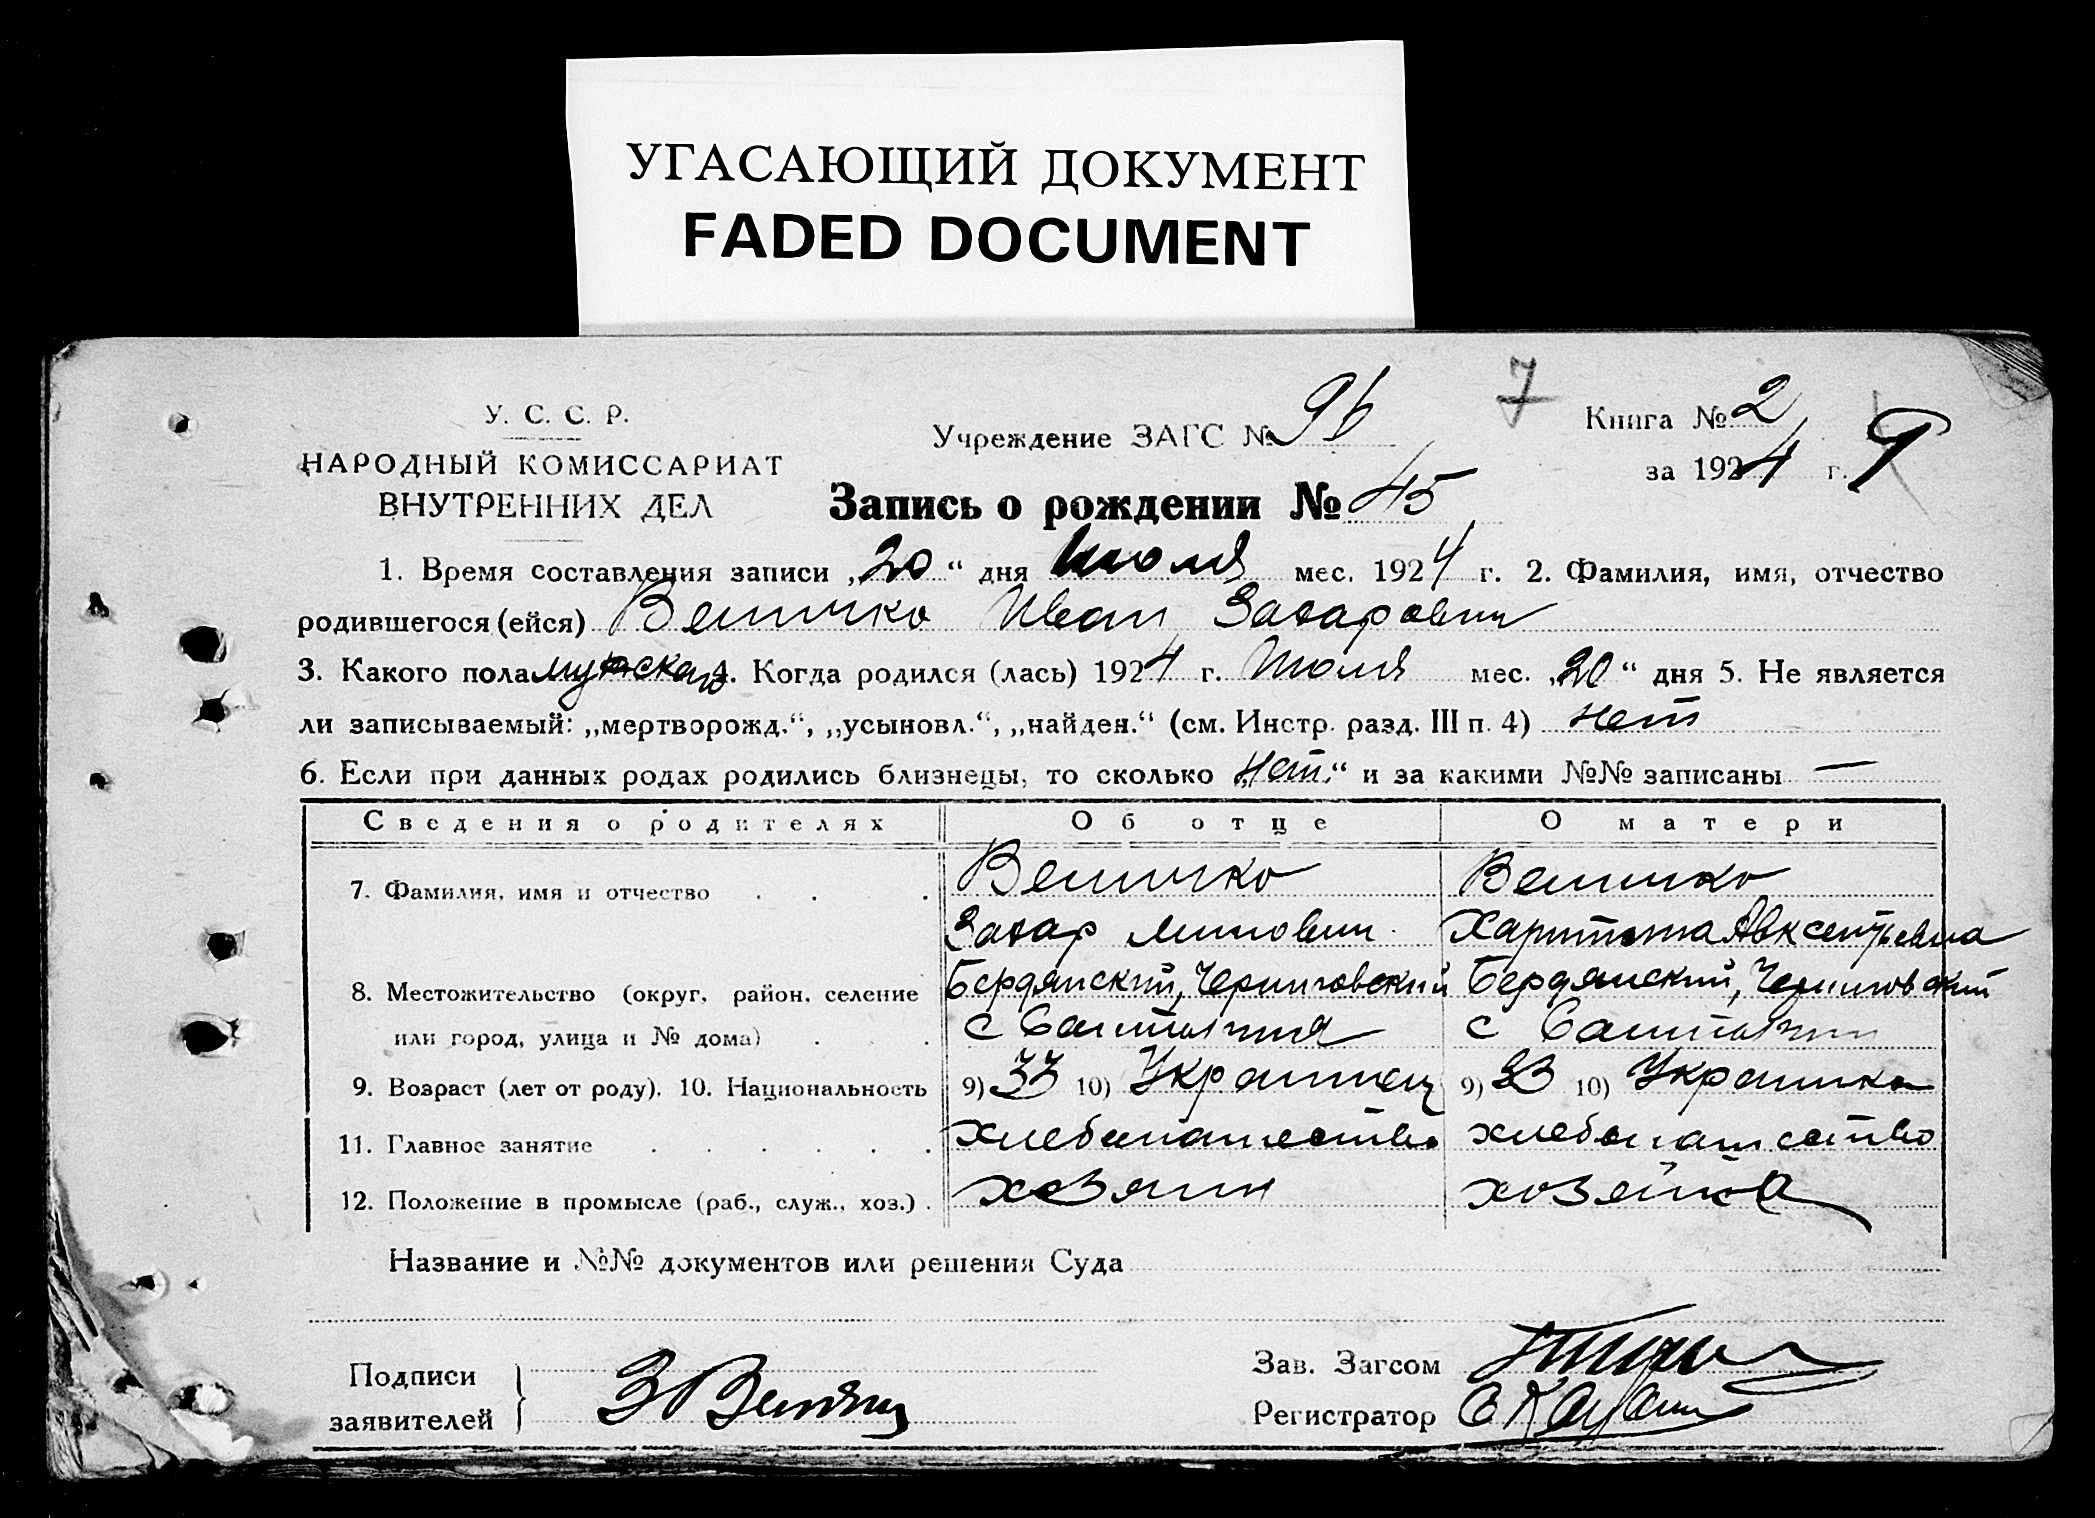 УГАСАЮЩИЙ ДОКУМЕНТ
FADED DOCUMENT
У. С. С. Р.
НАРОДНЫЙ КОМИССАРИАТ
ВНУТРЕННИХ ДЕЛ
Учреждение ЗАГС № 96
7
Книга № 2
за 1924 г. 9
Запись о рождении № 45
1. Время составления записи „20“ дня Июля мес. 1924 г. 2. Фамилия, имя, отчество
родившегося (ейся) Величко Иван Захарович
3. Какого пола мужского 4. Когда родился (лась) 1924 г. Июля мес. „20“ дня 5. Не является
ли записываемый: „мертворожд.“, „усыновл.“, „найден.“ (см. Инстр. разд. III п. 4) нет
6. Если при данных родах родились близнецы, то сколько „нет“ и за какими №№ записаны —
Сведения о родителях Об отце О матери
7. Фамилия, имя и отчество . . . Величко Величко
Захар Минович Харитина Авксентьевна
8. Местожительство (округ, район, селение Бердянский, Черниговский Бердянский, Черниговский
или город, улица и № дома) . . . с с
9. Возраст (лет от роду). 10. Национальность 9) 33 10) Украинец 9) 33 10) Украинка
11. Главное занятие . . . . . . хлебопашество хлебопашество
12. Положение в промысле (раб., служ., хоз.) . хозяин хозяйка
Название и №№ документов или решения Суда
Подписи
заявителей } З Величко
Зав. Загсом
Регистратор